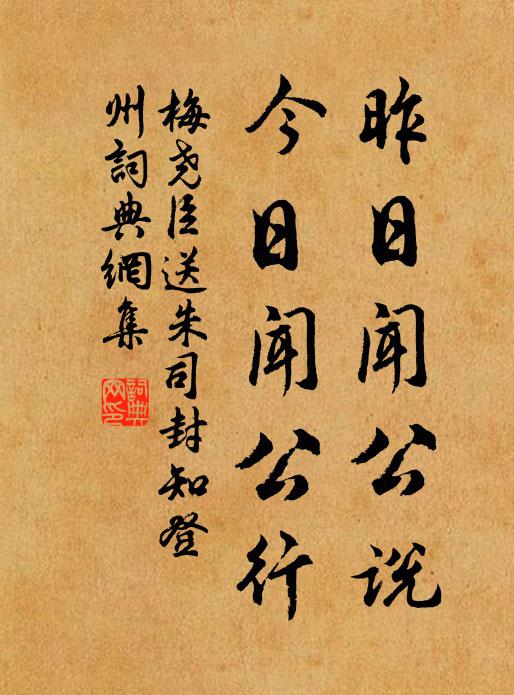 昨日闻公说
今日闻公行
梅尧臣送朱司封知登
州詞典網集
詞典
网印